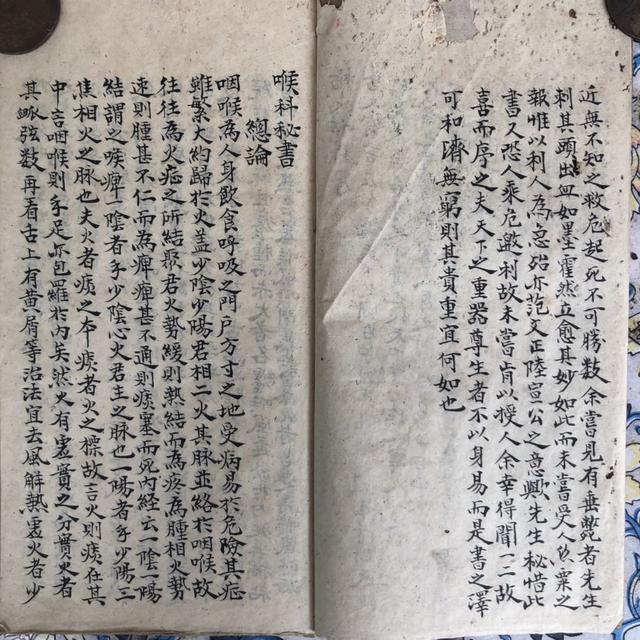 近無不知之救危起死不可勝數余嘗見有垂斃者先生
刺其頭出血如墨霍然立愈其妙如此而未嘗受人以粟之
報惟以利人為急殆亦范文正陸宣公之意歟先生秘惜此
書又恐人乘危邀利故未嘗肯以授人余幸得聞一二故
喜而序之夫天下之重器尊生者不以身易而是書之澤
可和濟無窮則其貴重宜何如也
喉科秘書
總論
咽喉為人身飲食呼吸之門戶方寸之地受病易於危險其症
雖繁大約歸於火蓋少陰少陽君相二火其脉並絡於咽喉故
往往為火症之所結聚君火勢緩則熱結而為疼為腫相火勢
速則腫甚不仁而為痺痺甚不通則痰塞而死內經云一陰一陽
結謂之喉痺一陰者手少陰心火君主之脉也一陽者手少陽三
焦相火之脉也夫火者痰之本痰者火之標故言火則痰在其
中言咽喉則手足亦包羅於內矣然火有虛實之分實火者
其脈弦數再看舌上有黃屑等治法宜去風解熱虛火者少